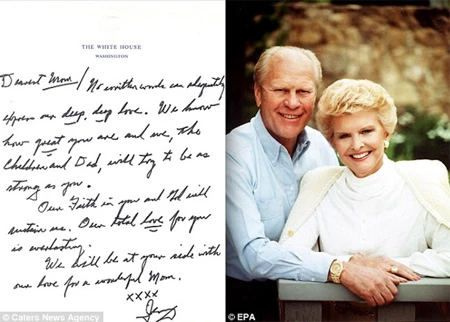 THE WHITE HOUSE
WASHINGTON
Dearest Mom / No written words can adequately
express our deep, deep love. We know
how great you are and we, the
children and Dad, will try to be as
strong as you.
Our Faith in you and God will
sustain us. Our total love for you
is everlasting.
We will be at your side with
our love for a wonderful Mom.
xxxx
Jerry
© Caters News Agency
© EPA